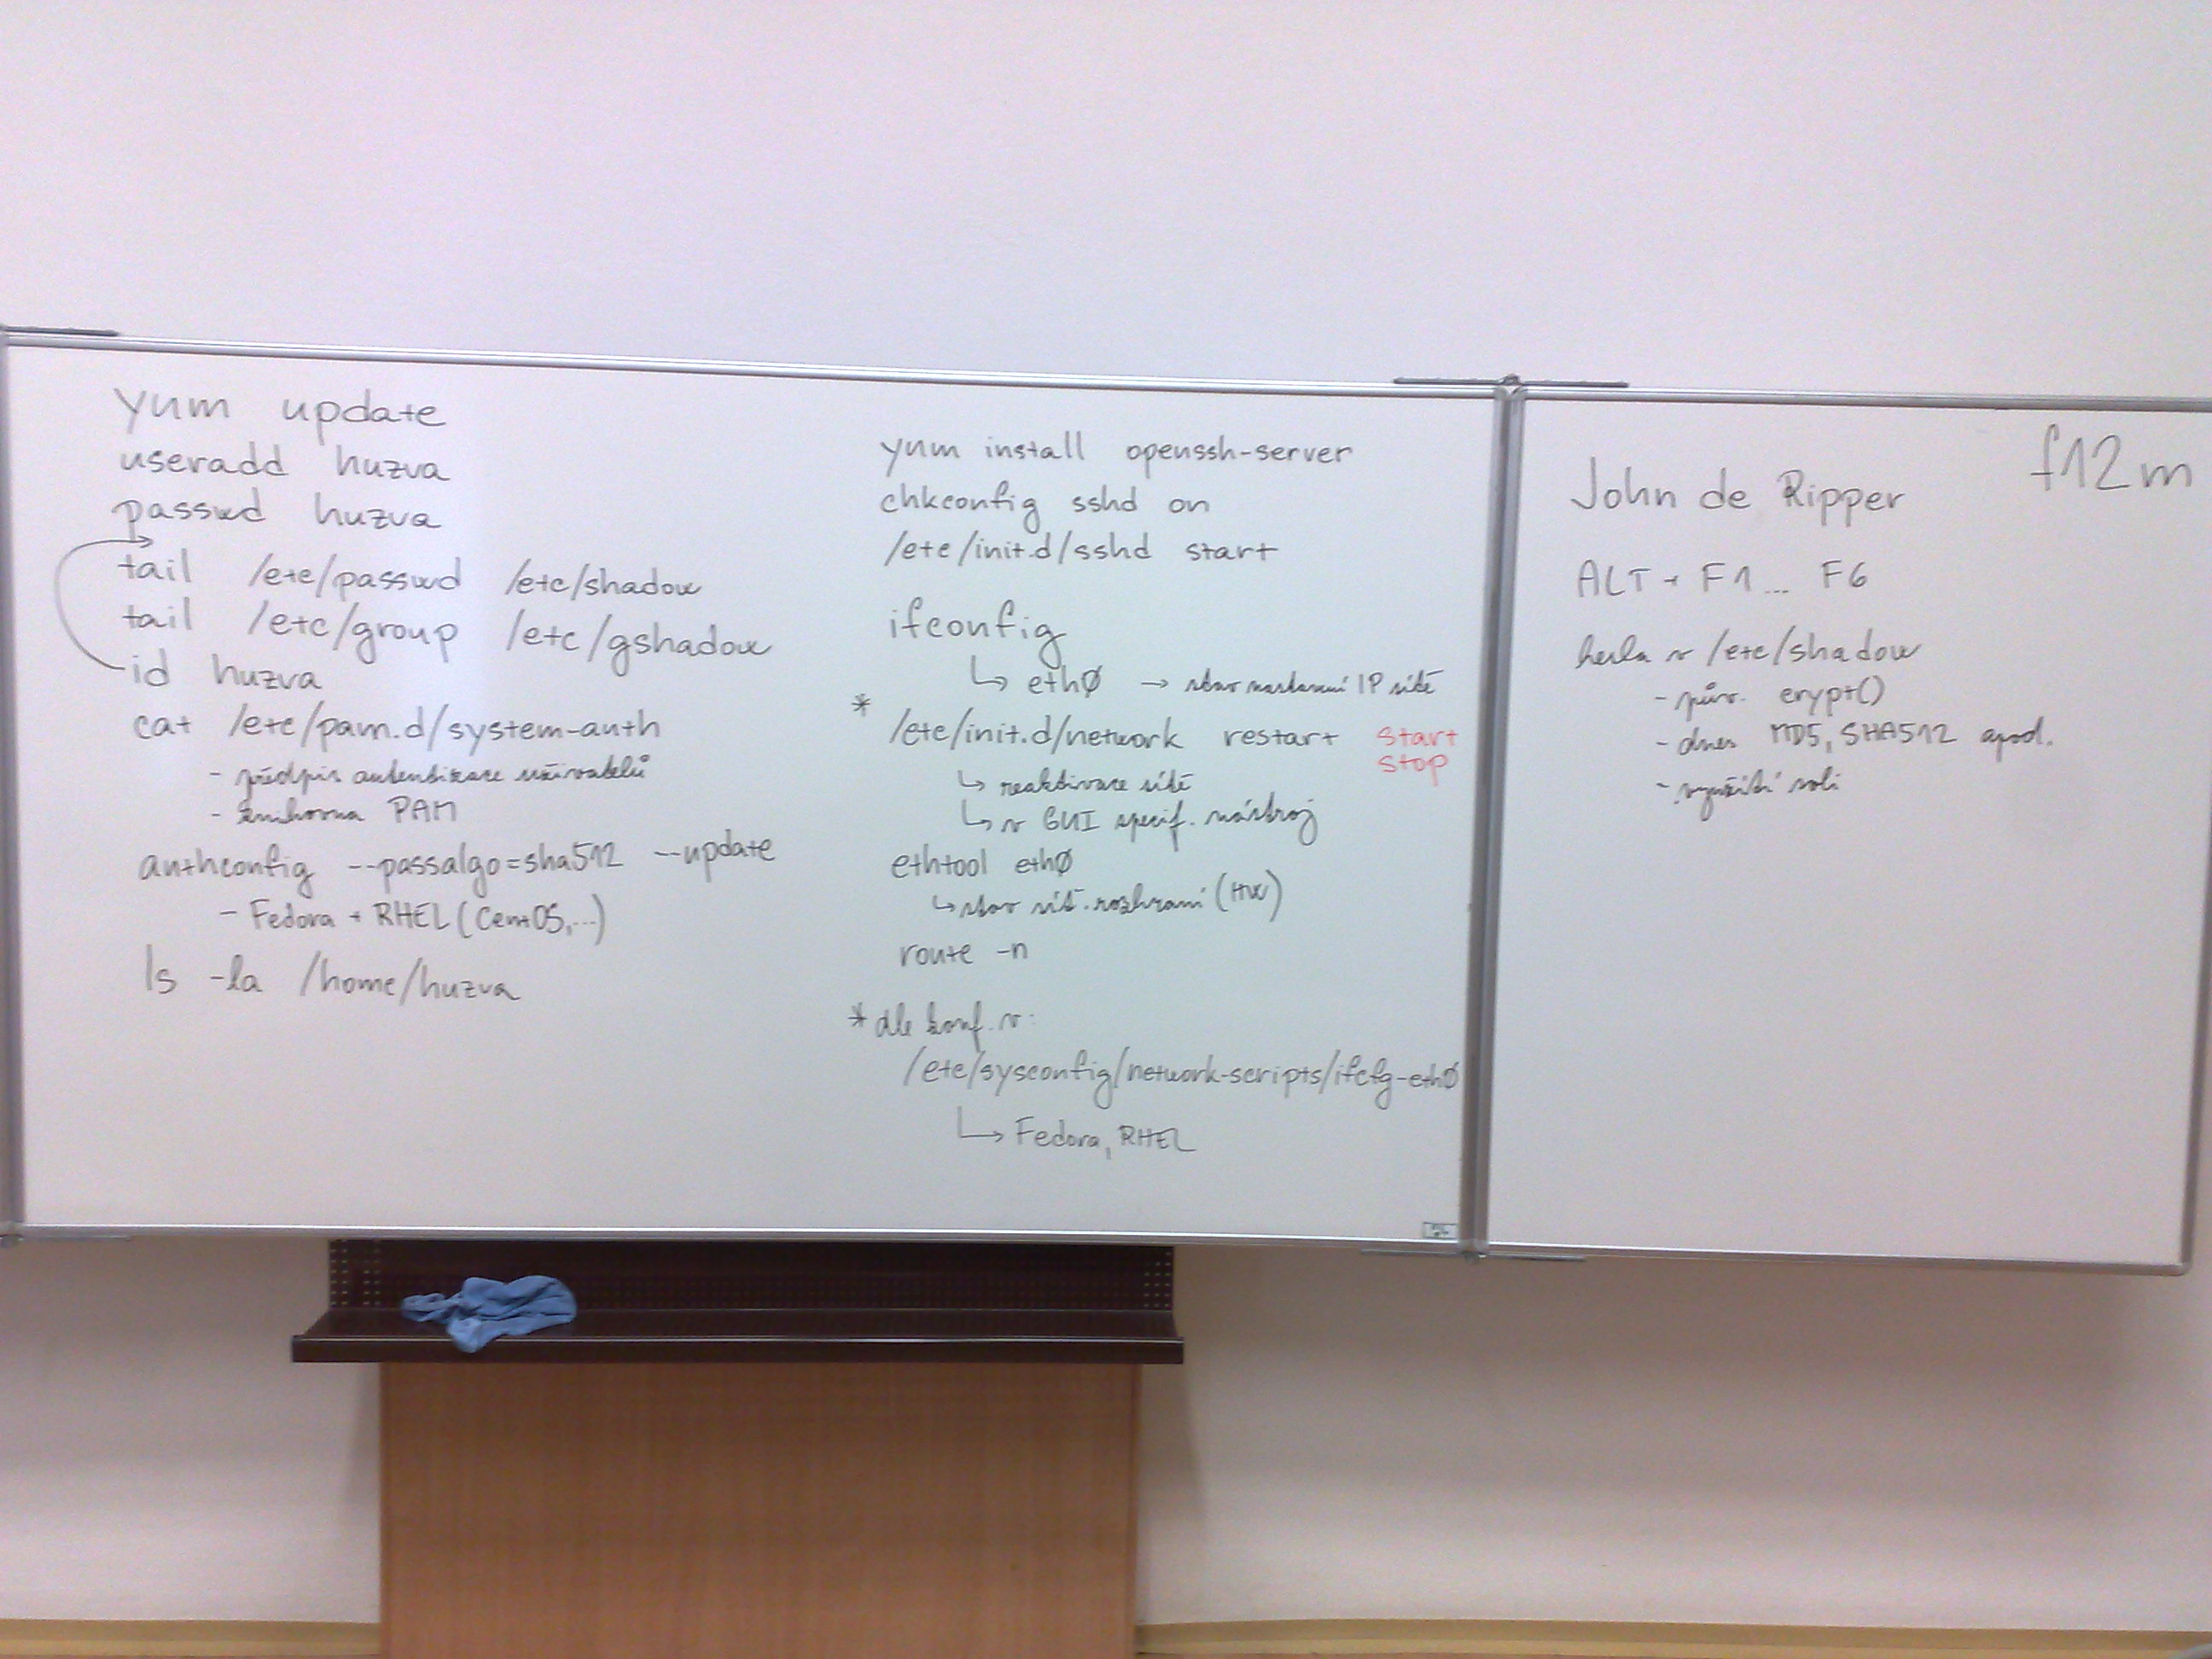 yum update
useradd huzva
passwd huzva
tail /etc/passwd /etc/shadow
tail /etc/group /etc/gshadow
id huzva
cat /etc/pam.d/system-auth
- předpis autentizace uživatelů
- knihovna PAM
authconfig --passalgo=sha512 --update
- Fedora + RHEL (CentOS,...)
ls -la /home/huzva
yum install openssh-server
chkconfig sshd on
/etc/init.d/sshd start
ifconfig
↳ eth0 → stav nastavení IP sítě
* /etc/init.d/network restart start
stop
↳ reaktivace sítě
↳ v GUI specif. nástroj
ethtool eth0
↳ stav síť. rozhraní (HW)
route -n
* dle konf. v:
/etc/sysconfig/network-scripts/ifcfg-eth0
↳ Fedora, RHEL
f12m
John de Ripper
ALT + F1 ... F6
hesla v /etc/shadow
- pův. crypt()
- dnes MD5, SHA512 apod.
- využití soli